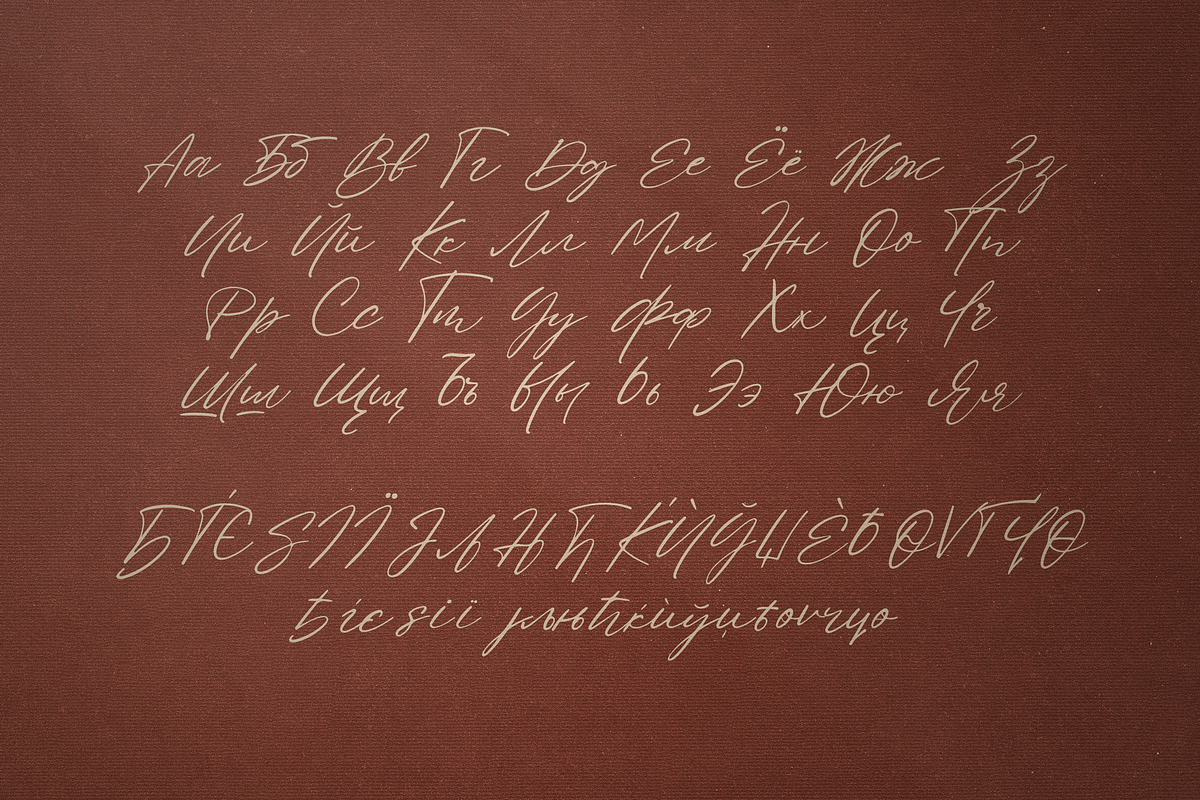 Аа Бб Вв Гг Дд Ее Ёё Жж Зз
Ии Йй Кк Лл Мм Нн Оо Пп
Рр Сс Тт Уу Фф Хх Цц Чч
Шш Щщ Ъъ Ыы Ьь Ээ Юю Яя
ЂЃЄЅІЇЈЉЊЋЌЍЎЏЀѢѲѴҐҶѲ
ђѓєѕії јљњћќѝўџѣѳѵґҷѳ